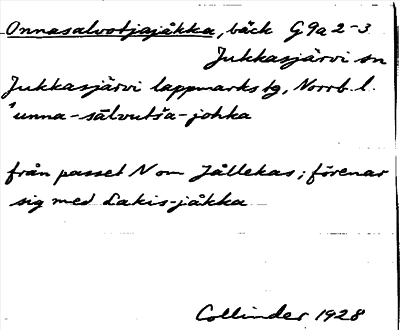 Onnasalvotjajåkka, bäck G9a2-3
Jukkasjärvi sn
Jukkasjärvi lappmarks tg, Norrb. l.
'unna-sālvutša-johka
från passet N om Jållekas; förenar
sig med Lakis-jåkka
Collinder 1928